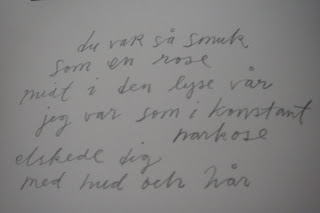 du var så smuk
som en rose
midt i den lyse vår
jeg var som i konstant
narkose
elskede dig
med hud och hår